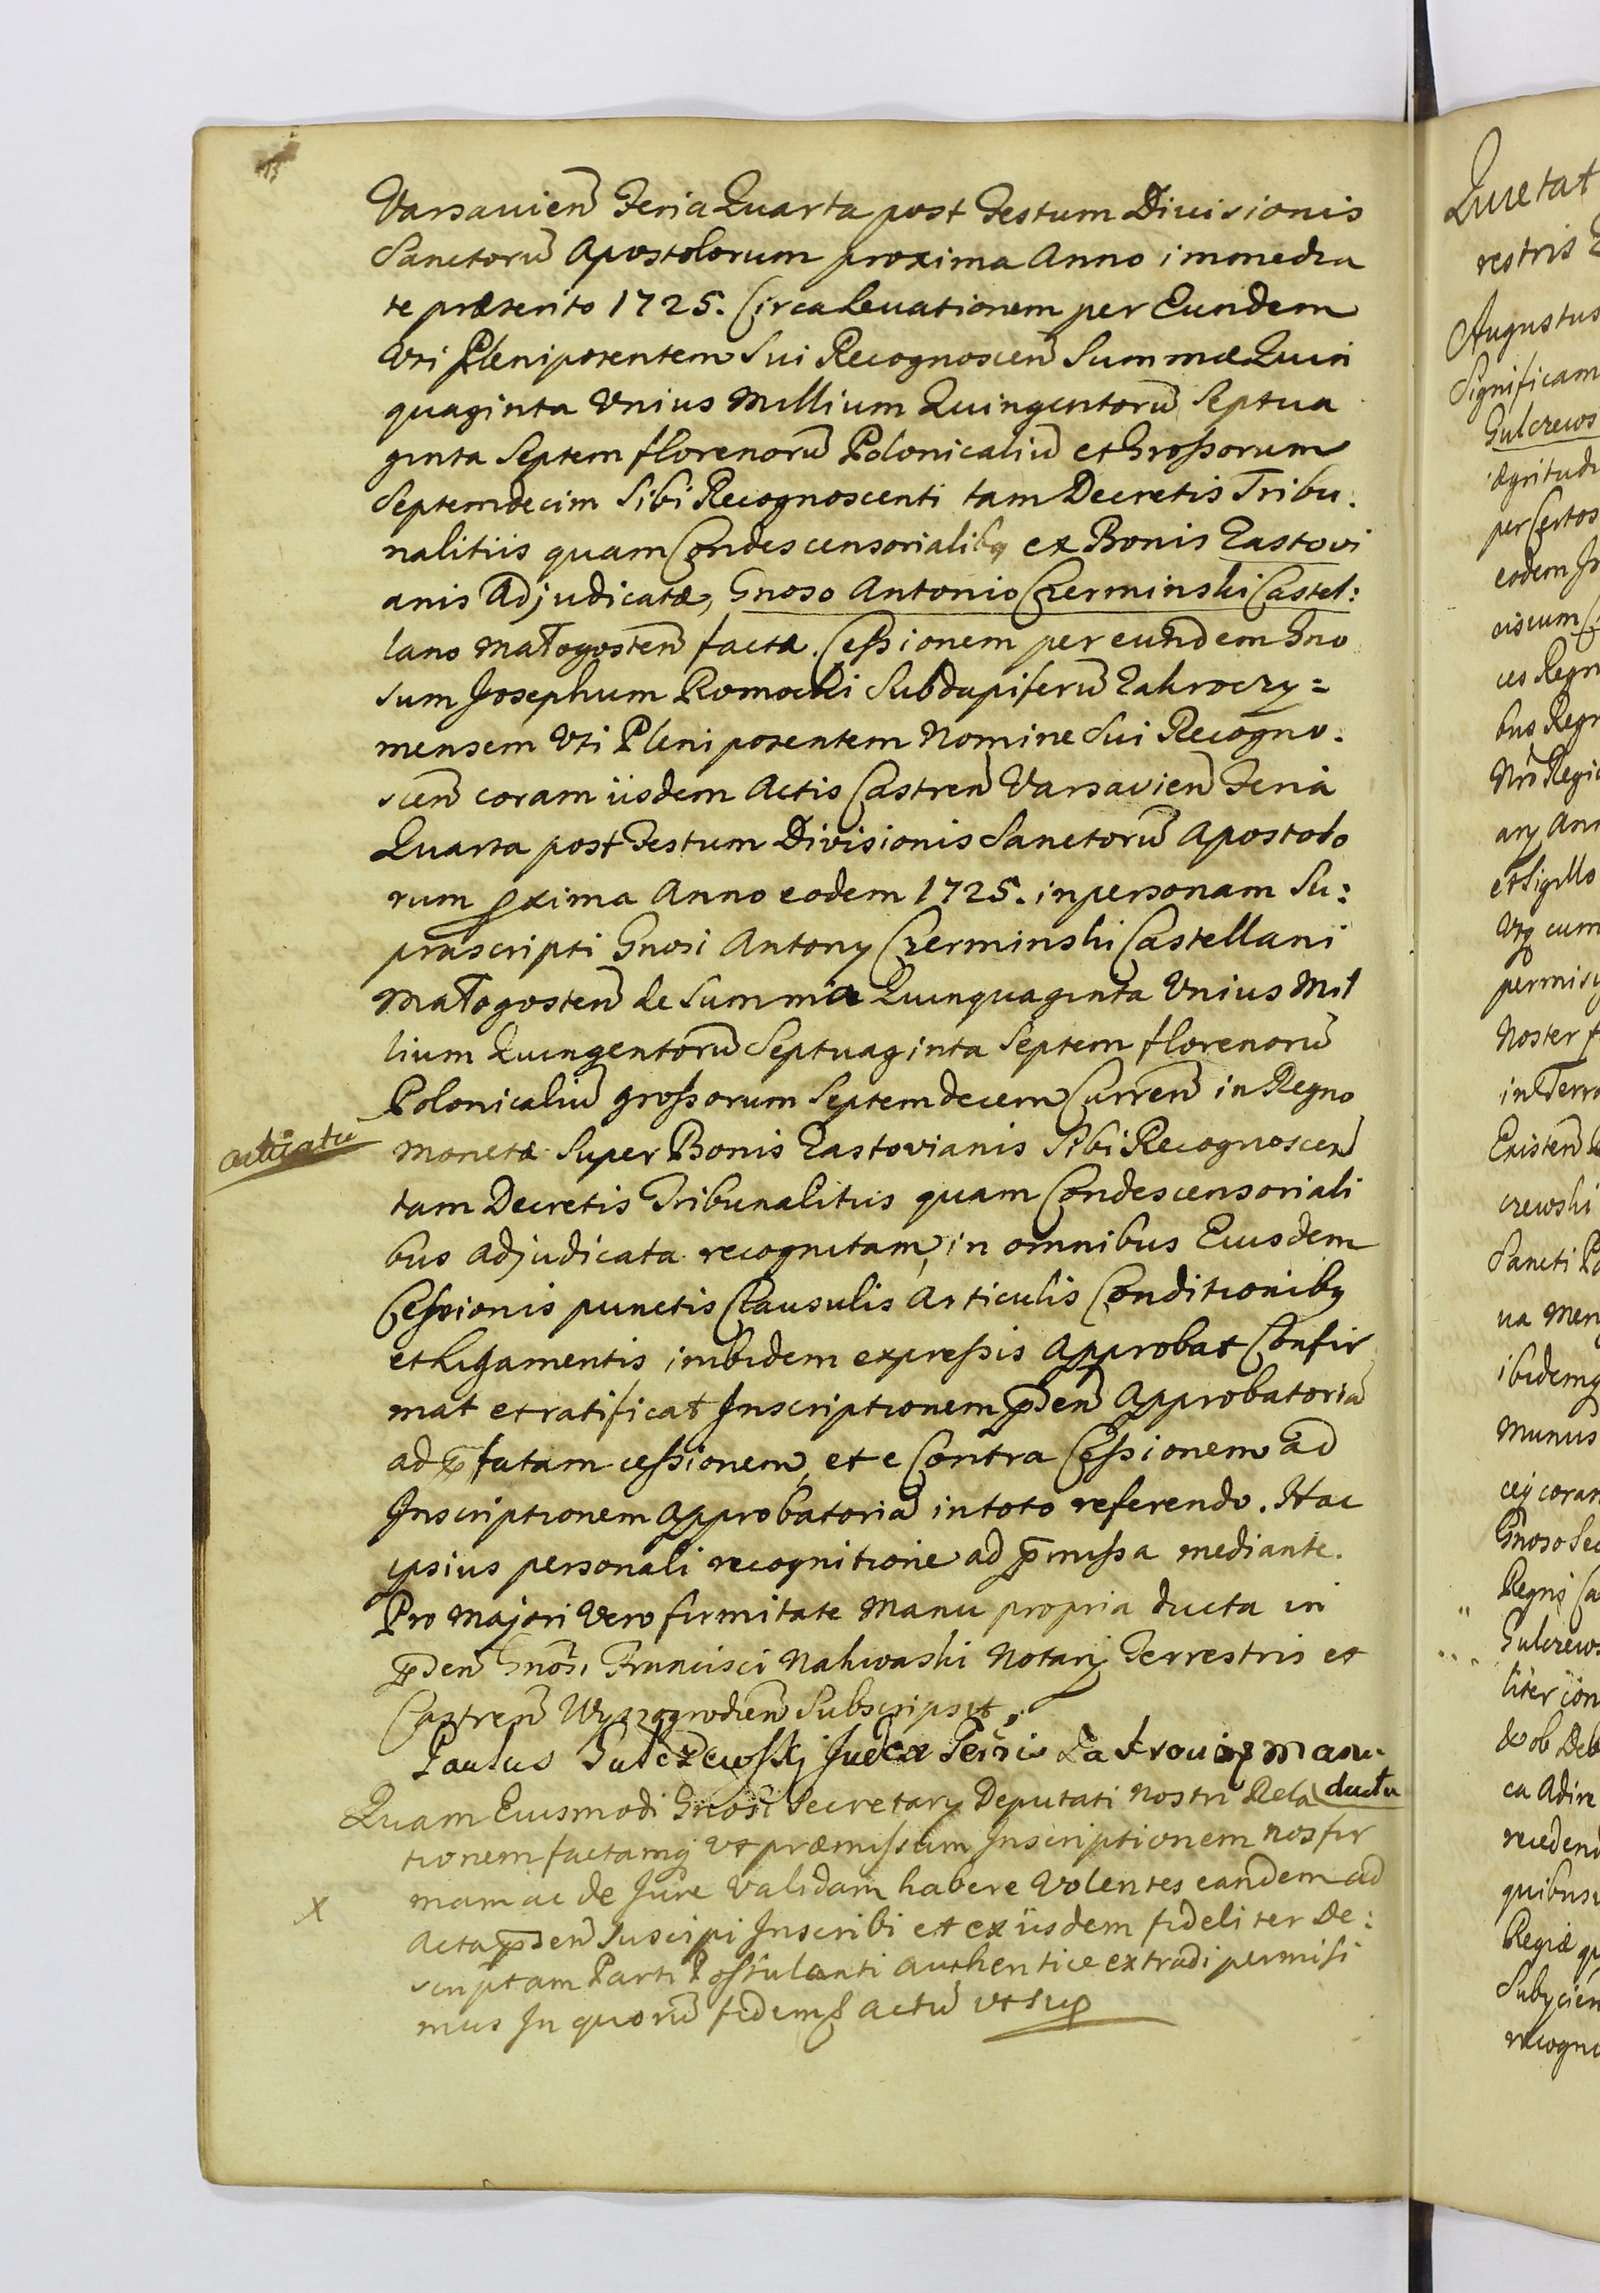 Varsavien̄ Feria Quarta post Festum Divisionis
Sanctorū Apostolorum proxima Anno immedia
te præterito 1725. Circa Levationem per Eundem
Uti Plenipotentem Sui Recognoscen̄ Summæ Quin
quaginta Unius Millium Quingentorū Septua
ginta Septem florenorū Polonicaliū et Grossorum
Septemdecim Sibi Recognoscenti tam Decretis Tribu:
nalitiis quam Condescensorialibq ex Bonis Zastovi
anis Adjudicatæ, Gnoso Antonio Czerminski Castel:
lano Małogosten̄ facta. Cessionem per eundem Gno
sum Josephum Romocki Subdapiferū Zakroczy=
mensem Uti Plenipotentem Nomine Sui Recogno:
scen̄ coram iisdem Actis Castren̄ Varsavien̄ Feria
Quarta post Festum Divisionis Sanctorū Apostolo
rum pxima Anno eodem 1725. in personam Su:
prascripti Gnosi Antony Czerminski Castellani
Małogosten̄ de Summa Quinquaginta Unius Mil
lium Quingentorū Septuaginta Septem florenorū
Polonicaliū grossorum Septemdecem Curren̄ in Regno
Moneta Super Bonis Zastovianis Sibi Recognoscen̄
tam Decretis Tribunalitiis quam Condescensoriali
bus adjudicata recognitam, in omnibus Eiusdem
Cessionis punctis Clausulis Articulis Conditionibq
et Ligamentis inibidem expressis Approbat Confir
mat et ratificat Inscriptionem p̄den̄ Approbatoriā
ad p̄fatam cessionem, et e Contra Cessionem ad
Inscriptionem Approbatoriā in toto referendo. Hac
ipsius personali recognitione ad p̄missa mediante.
Pro Majori Vero firmitate Manu propria ducta in
p̄den̄ Gnosi Francisci Nakwaski Notarij Terrestris et
Castren̄ Wyszogrodien̄ Subscripsit.
Paulus Sulczewskj Judex Terris manu
ducta
Quam Eiusmodi Gnosi Secretarij Deputati Nostri Rela
tionem factamq Ut præmissum Inscriptionem nos fir
mam ac de Jure Validam habere Volentes eandem ad
Acta p̄den̄ Suscipi Inscribi et ex iisdem fideliter De:
scriptam Parti Postulanti Authentice extradi permisi
mus In quorū fidem Actū ut sup
X
Quietat
restris
Augustus
Significam
Sulczews
ægritudi
per Certos
eodem
ces Regn
bus Regn
Nrō Regio
Ann
et Sigillo
Utq cum
permisi
Noster
in Terra
Existen̄
czewski
Sancti
va Men
ibidemq
Munus
cej coram
Gnoso Sec
Regni Ca
Sulczews
liter
ob Deb
ca Adire
recedend
quibusv
Regiæ qu
Subycien
recogno